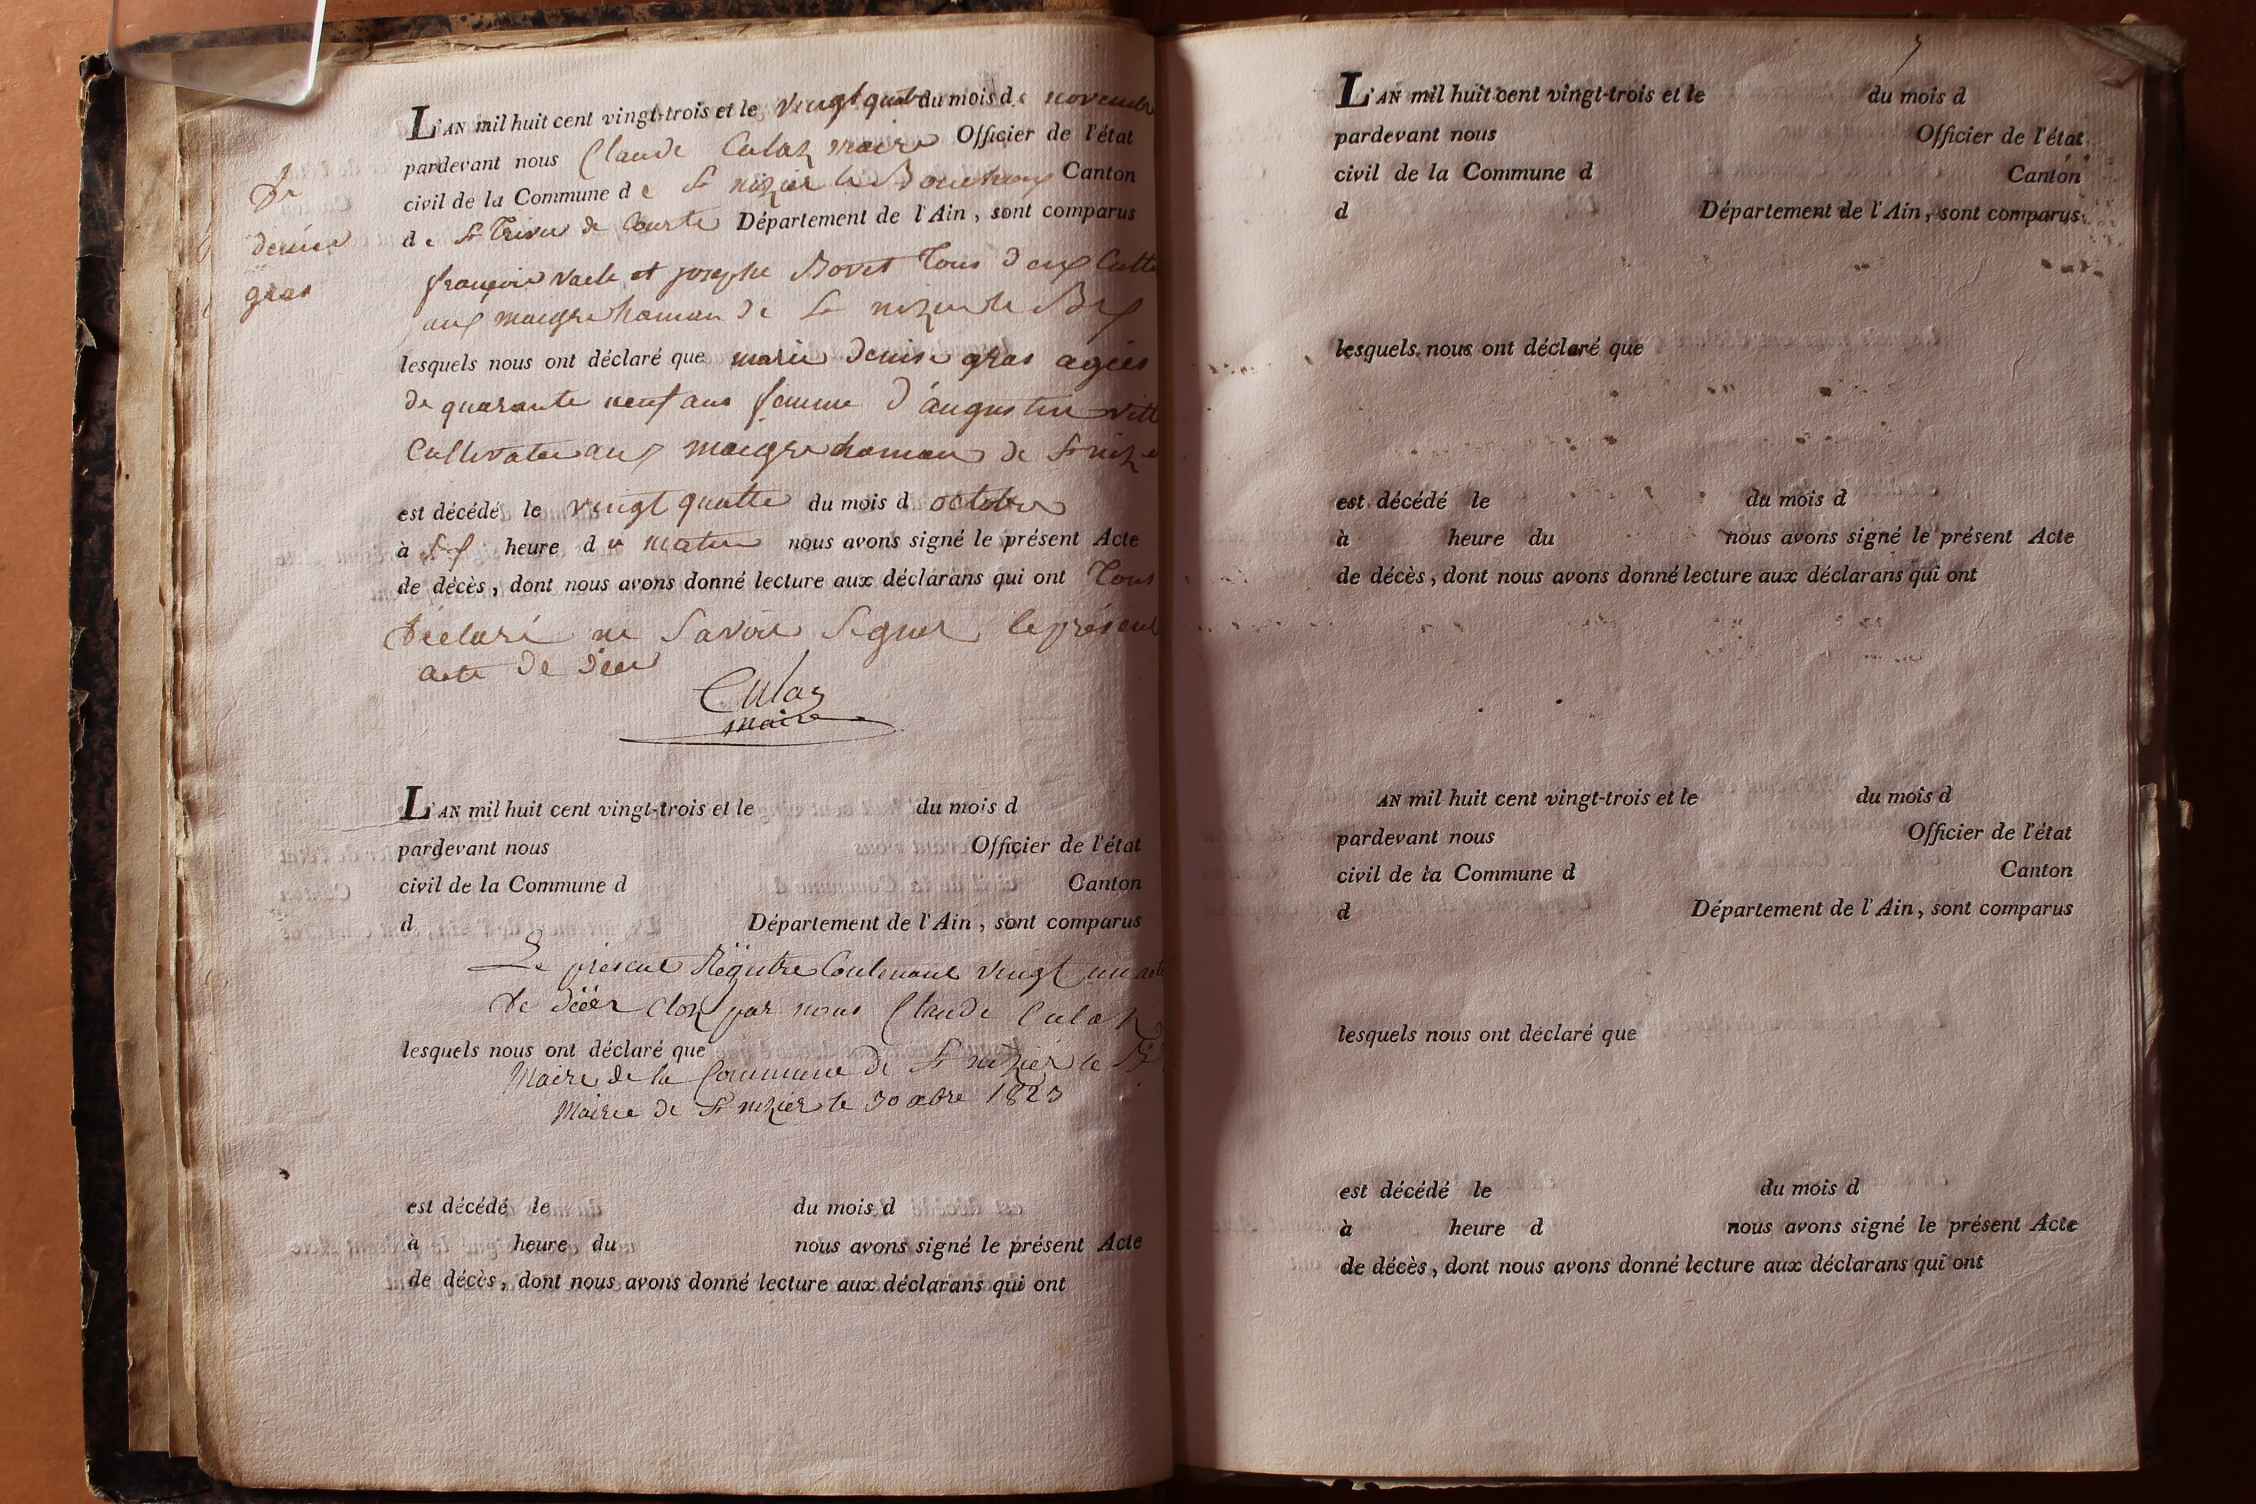 L'AN mil huit cent vingt-trois et le vingt quatre du mois de novembre
pardevant nous Claude Culaz maire Officier de l'état
civil de la Commune de St nizier le Bouchoux Canton
de St Trivier de Courte Département de l'Ain, sont comparus
De
denise
gras
françois vacle et josephe Bovet Tous deux Culti
aux hamau de St nizier le Bx
lesquels nous ont déclaré que marie denise gras agées
de quarante neuf ans femme d'augustin
Cultivateur aux hamau de St nizie
est décédé le vingt quatre du mois d octobre
à heure du matin nous avons signé le présent Acte
de décès, dont nous avons donné lecture aux déclarans qui ont Tous
Déclaré ne Savoir Signer le présent
acte de décé
Culaz
maire
L'AN mil huit cent vingt-trois et le du mois d
pardevant nous Officier de l'état
civil de la Commune d Canton
d Département de l'Ain, sont comparus
Le présent Régistre Contenant vingt un acte
de décèr Clos par nous Claude Culaz
lesquels nous ont déclaré que
Maire de la Commune de St nizier le B
Mairie de St nizier le 1823
est décédé le du mois d
à heure du nous avons signé le présent Acte
de décès, dont nous avons donné lecture aux déclarans qui ont
L'AN mil huit cent vingt-trois et le du mois d
pardevant nous Officier de l'état
civil de la Commune d Canton
d Département de l'Ain, sont comparus
lesquels nous ont déclaré que
est décédé le du mois d
à heure du nous avons signé le présent Acte
de décès, dont nous avons donné lecture aux déclarans qui ont
AN mil huit cent vingt-trois et le du mois d
pardevant nous Officier de l'état
civil de la Commune d Canton
d Département de l'Ain, sont comparus
lesquels nous ont déclaré que
est décédé le du mois d
à heure d nous avons signé le présent Acte
de décès, dont nous avons donné lecture aux déclarans qui ont